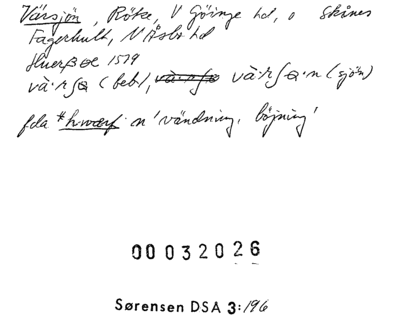 Värsjön, Röke, V Göinge hd, o Skånes
Fagerhult, N Åsbo hd
Huerßøe 1579
(beb), (sjön)
fda *hwærf n 'vändning, böjning'
00032026
Sørensen DSA 3:196